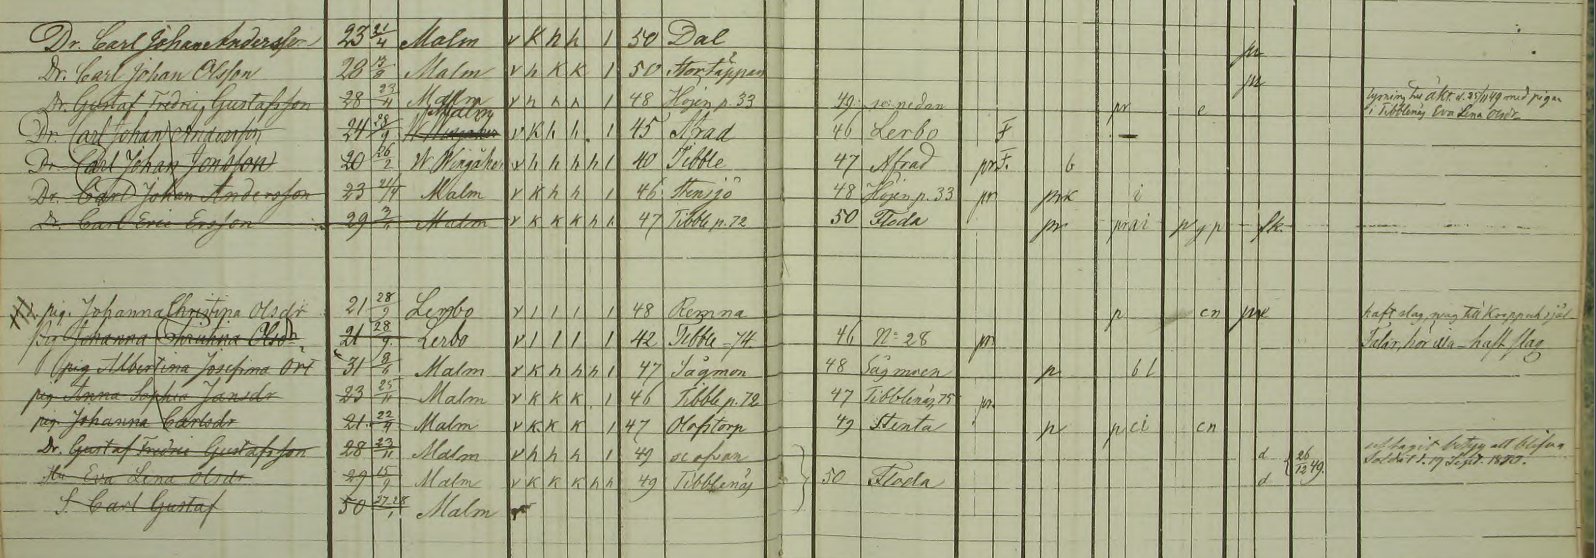 Dr. Carl Johan Andersson 23 21/4 Malm v k h h 1 50 Dal pr
Dr. Carl Johan Olsson 28 13/9 Malm v h k k 1 50 Stortäppan pr
Dr. Gustaf Fredric Gustafsson 28 23/11 Malm v h h h 1 48 Höjen p. 33 49 se nedan pr e lysning till äkt. d. 25/11 49 med pigan
i Tibblenäs Eva Lena Olsdr
Dr. Carl Johan Andersson 24 28/9 Malm v k h h 1 45 Åfrad 46 Lerbo F —
Dr. Carl Johan Jonsson 20 26/2 W Wingåker v h h h h 1 40 Tibble 47 Åfrad pr F. b
Dr. Carl Johan Andersson 23 21/4 Malm v k h h 1 46 Stensjö 48 Höjen p. 33 pr prk i
Dr. Carl Eric Ersson 29 Malm v k k k h h 47 Tibble p. 72 50 Floda pr pr a i p g p fk.
pig. Johanna Christina Olsdr 21 28/9 Lerbo v 1 1 1 1 48 Remna p en haft slag, svag till kropp och själ
Johanna Christina Olsdr 21 28/9 Lerbo v 1 1 1 1 42 Tibble - 74 46 N:o 28 pr Talar, hör illa - haft slag
pig Albertina Josefina Ört 31 8/6 Malm v k h h h 1 47 Sågmon 48 Sågmoen p b l
pig Anna Sophia Jansdr 23 25/11 Malm v k k k 1 46 Tibble p. 72 47 Tibblenäs 75 pr
pig. Johanna Carlsdr 21 22/9 Malm v k k k 1 47 Olofstorp 49 Stenta p p c i en
Dr. Gustaf Fredric Gustafsson 28 23/11 Malm v h h h 1 49 se ofvan d 26/12 49. uttagit betyg att blifva
Soldat d. 19 Sept.
Hu Eva Lena Olsdr 29 15/9 Malm v k k k h h 49 Tibblenäs 50 Floda d
S. Carl Gustaf 50 Malm